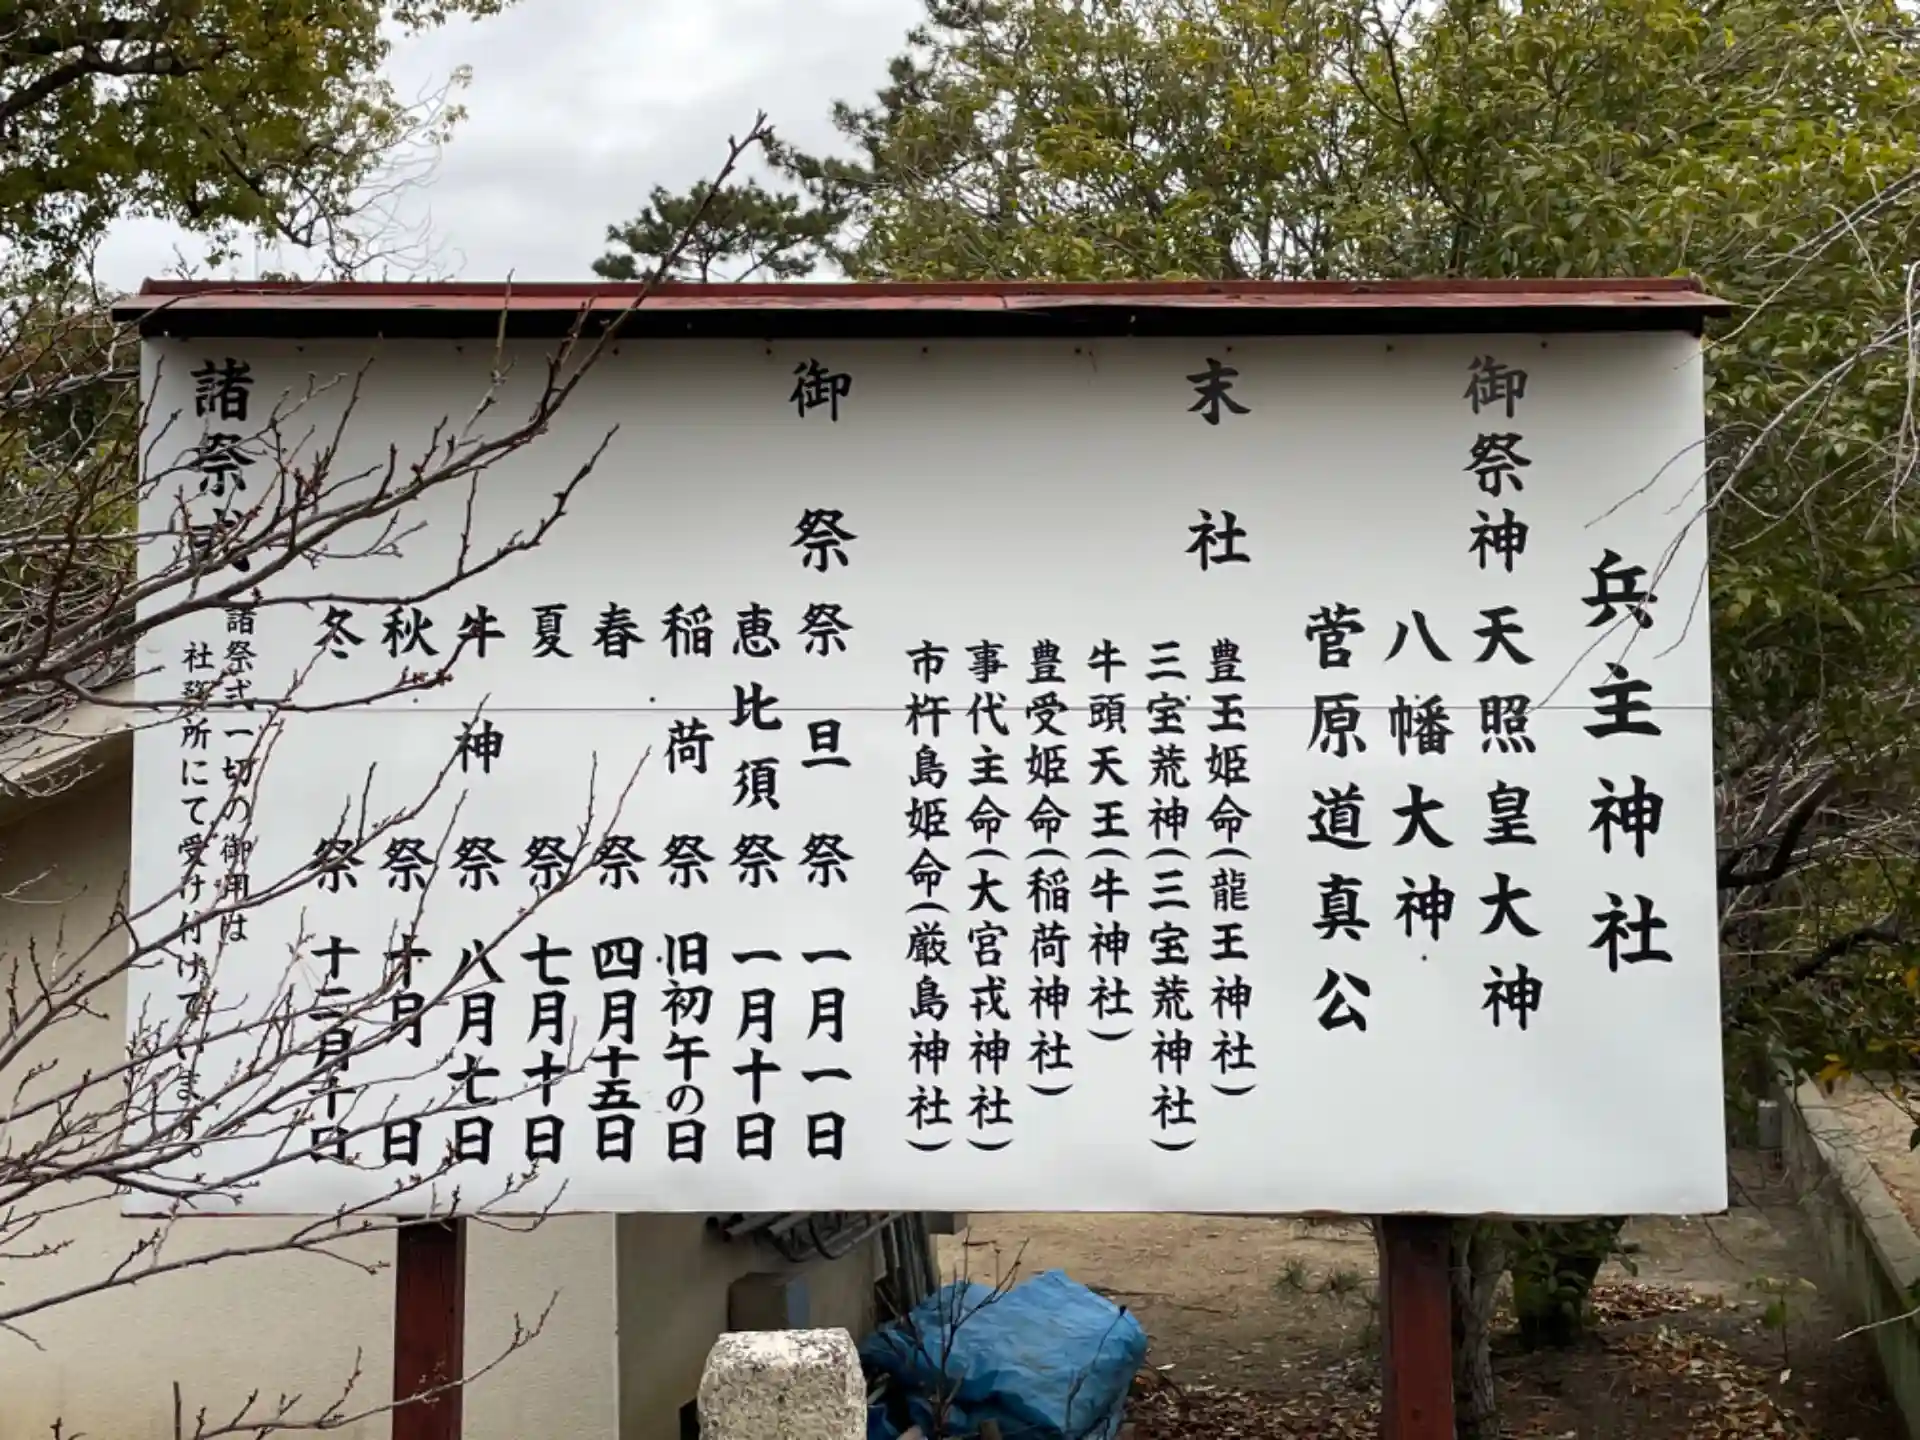 兵主神社
御祭神 天照皇大神
八幡大神
菅原道真公
末社
豊玉姫命(龍王神社)
三宝荒神(三宝荒神社)
牛頭天王(牛神社)
豊受姫命(稲荷神社)
事代主命(大宮戎神社)
市杵島姫命(厳島神社)
御祭祭
旦祭 一月一日
恵比須祭 一月十日
稲荷祭 旧初午の日
春祭 四月十五日
夏祭 七月十日
牛神祭 八月七日
秋祭 十月 日
冬祭 十二月十日
諸祭式
諸祭式一切の御用は
社務所にて受け付けています。